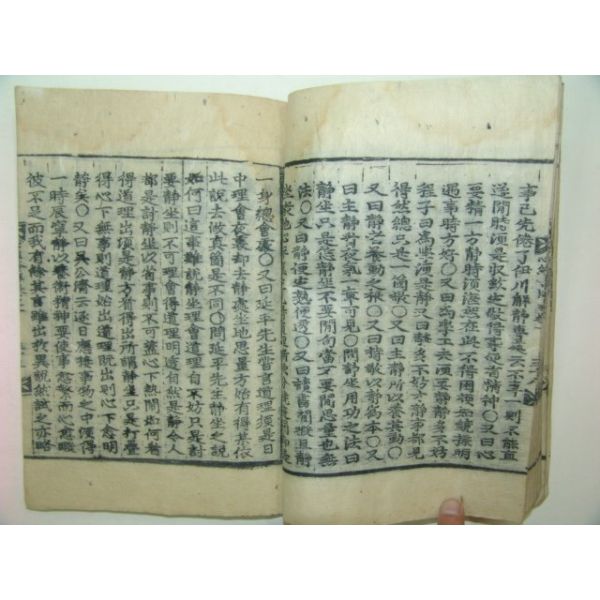 事已先倦了伊川解靜專處云不專一則不能直
遂閒時須是收斂
要精一方靜時須湛然在此不得困頓如鏡樣明
遇事時方好〇又曰
程子曰為學須是靜又曰靜多不妨才靜事都見
得然總只是一箇敬〇又曰主靜所以養其動〇
又曰靜者養動之根〇又曰持敬以靜為本〇又
曰主靜夜氣一章可見〇問靜坐用功之法曰
靜坐只是恁靜坐不要閒勾當不要閒思量也無
法〇
一身總會處〇又曰延平先生嘗言道理須是日
中理會夜裏却去靜處坐地思量方始有得某依
此說去做真箇是不同〇問延平先生靜坐之說
如何曰這事難說靜坐理會道理自不妨只是討
要靜坐則不可理會得道理明透自然是靜今人
都是討靜坐以省事則不可蓋心下熱鬧如何看
得道理出須是靜方看得出所謂靜坐只是打疊
得心下無事則道理始出道理既出則心下愈明
靜矣〇又曰吳公濟云逐日應接事物之中須得
一時辰寧靜以養衛精神要使事愈繁而心愈暇
彼不足而我有餘其言雖出於異說然試之亦略